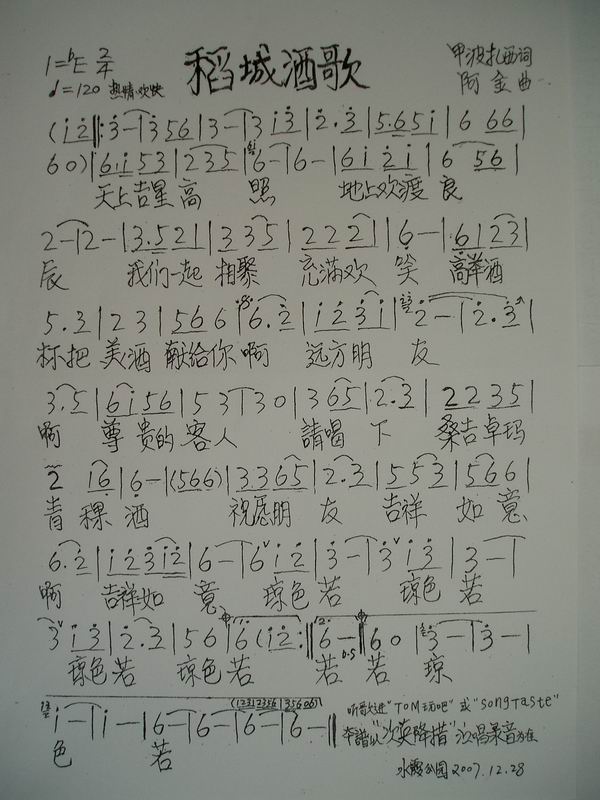 1=♭E 2/4
稻城酒歌
甲波扎西词
♩=120 热情.欢快
阿金曲
(i̇ 2̇ ‖: 3̇ — | 3̇ 5 6 | 3 — | 3 i̇ 3̇ | 2̇ . 3̇ | 5 . 6 5 i̇ | 6 6 6 |
6 0) | 6 . i̇ 5 3 | 2 3 5 | 6 — | 6 — | 6 i̇ 2̇ i̇ | 6 5 6 |
天上吉星高 照 地上欢渡 良
2 — | 2 — | 3 . 5 2 1 | 3 3 5 | 2 2 2 | 6̣ — | 6̣ 1 2 3 |
辰 我们一起 相聚 充满欢 笑 高举酒
5 . 3 | 2 3 | 5 6 6 | 6 . 2̇ | i̇ 2̇ 3̇ i̇ | 2̇ — | 2̇ . 3̇ |
杯把 美酒 献给你 啊 远方朋 友
3 . 5 | 6 i̇ 5 6 | 5 3 | 3 0 | 3 6 5 | 2 . 3 | 2 2 3 5 |
啊 尊贵的 客人 請唱 下 桑吉卓玛
2 1 6̣ | 6̣ — | (5 6 6) | 3 . 3 6 5 | 2 . 3 | 5 5 3 | 5 6 6 |
青稞 酒 祝愿朋 友 吉祥 如意
6 . 2̇ | i̇ 2̇ 3̇ i̇ 2̇ | 6 — | 6 i̇ 2̇ | 3̇ — | 3̇ i̇ 3̇ | 3 — |
啊 吉祥如 意 琼色 若 琼色 若
3̇ i̇ 3̇ | 2̇ . 3̇ | 5 6 | 6 (i̇ 2̇ :‖ 6 — | 6 0 | 3̇ — | 3̇ — |
琼色若 琼色若 若 若 琼
i̇ — | i̇ — | 6 — | 6 — | 6 — | 6 — ‖
色 若
听歌进"TOM玩吧"或"songTaste"
李譜以"次英降措"演唱录音为准
水霞公園2007.12.28